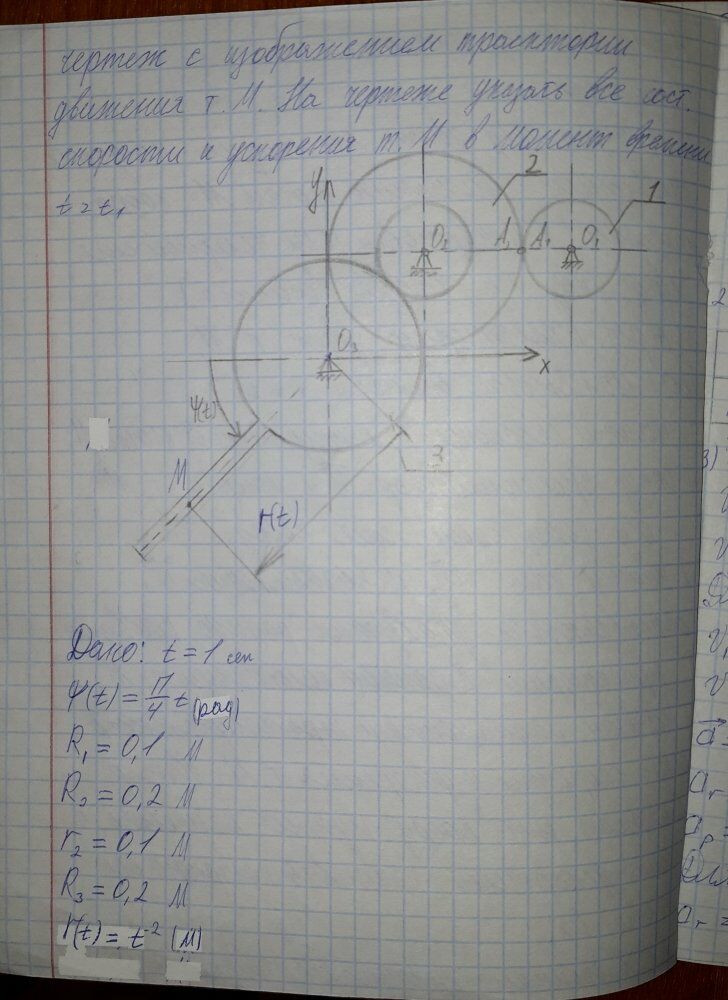 чертеж с изображением траектории
движения т. М. На чертеже указать все сост.
скорости и ускорения т. М в момент времени
t = t₁
y
2
1
O₂
A₂
A₁
O₁
O₃
x
ψ(t)
M
3
r(t)
Дано: t = 1 сек
ψ(t) = π/4 t (рад)
R₁ = 0,1 м
R₂ = 0,2 м
r₂ = 0,1 м
R₃ = 0,2 м
r(t) = t⁻² (м)